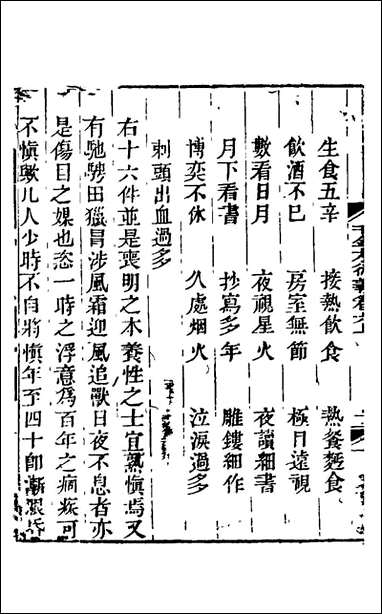 生食五辛　接熱飲食　熱餐麪食
飲酒不已　房室無節　極目遠視
數看日月　夜視星火　夜讀細書
月下看書　抄寫多年　雕鏤細作
博奕不休　久處烟火　泣淚過多
刺頭出血過多
右十六件並是喪明之本養性之士宜熟慎焉又
有馳騁田獵冒涉風霜迎風追獸日夜不息者亦
是傷目之媒也恣一時之浮意爲百年之痼疾可
不慎歟凡人少時不自將慎年至四十卽漸眼昏